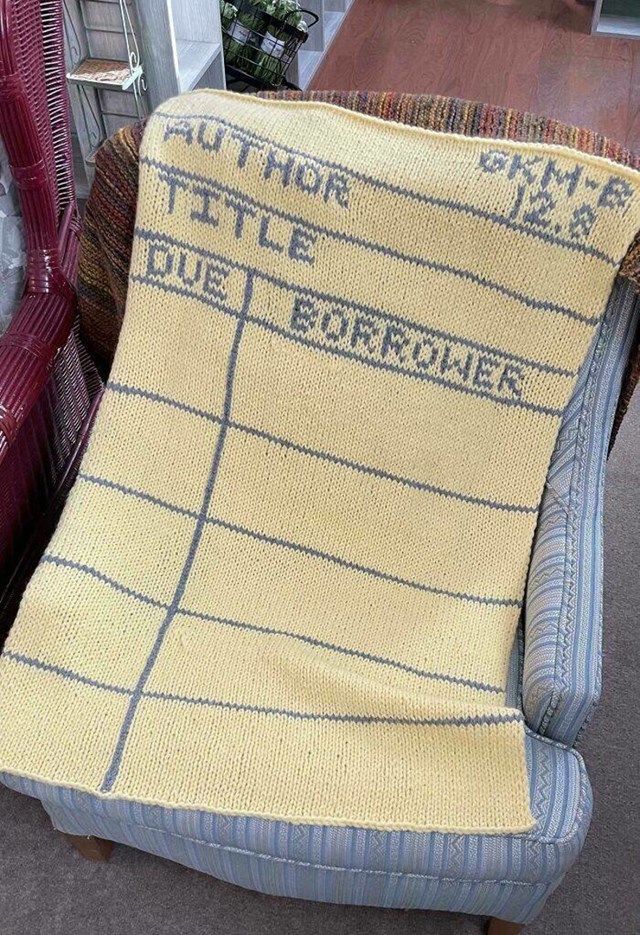 AUTHOR
12.8
TITLE
DUE BORROWER